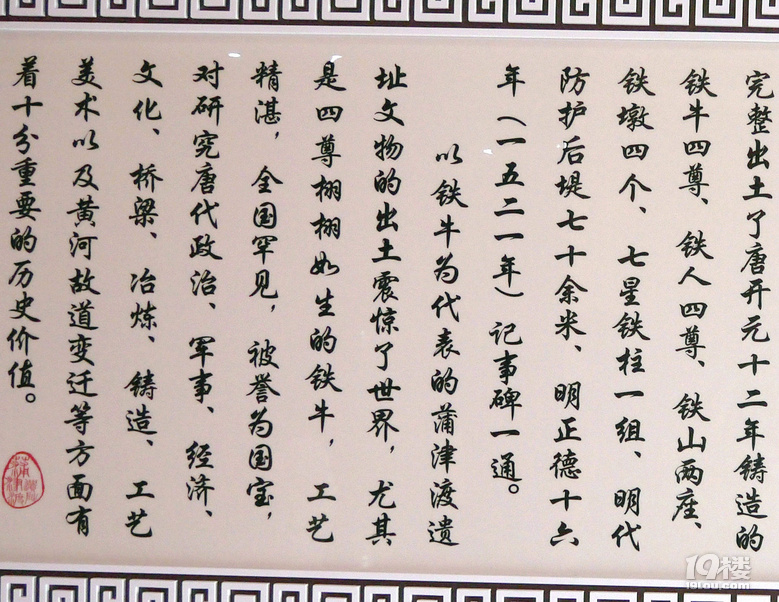 完整出土了唐开元十二年铸造的
铁牛四尊、铁人四尊、铁山两座、
铁墩四个、七星铁柱一组、明代
防护后堤七十余米、明正德十六
年(一五二一年)记事碑一通。
以铁牛为代表的蒲津渡遗
址文物的出土震惊了世界,尤其
是四尊栩栩如生的铁牛,工艺
精湛,全国罕见,被誉为国宝,
对研究唐代政治、军事、经济、
文化、桥梁、冶炼、铸造、工艺
美术以及黄河故道变迁等方面有
着十分重要的历史价值。
19楼
19lou.com